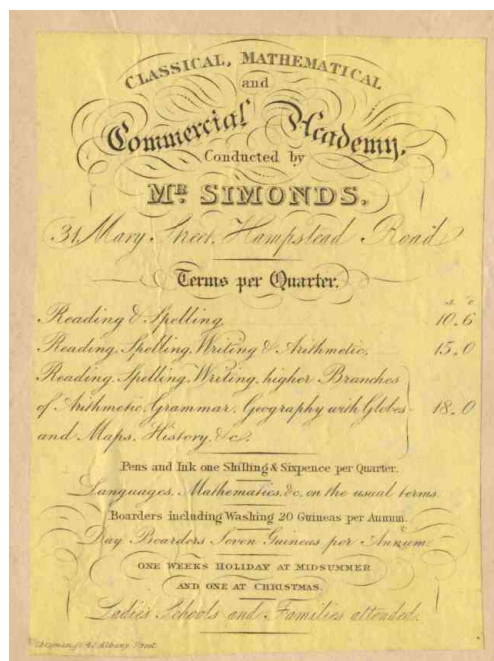 CLASSICAL, MATHEMATICAL
and
Commercial Academy,
Conducted by
MR. SIMONDS,
31, Mary Street, Hampstead Road
Terms per Quarter.
s. d
Reading & Spelling 10.6
Reading, Spelling, Writing & Arithmetic, 15.0
Reading, Spelling, Writing, higher Branches
of Arithmetic, Grammar, Geography with Globes 18.0
and Maps, History, &c.
Pens and Ink one Shilling & Sixpence per Quarter.
Languages, Mathematics, &c. on the usual terms.
Boarders including Washing 20 Guineas per Annum.
Day Boarders Seven Guineas per Annum.
ONE WEEKS HOLIDAY AT MIDSUMMER
AND ONE AT CHRISTMAS.
Ladies Schools and Families attended.
Albany Street